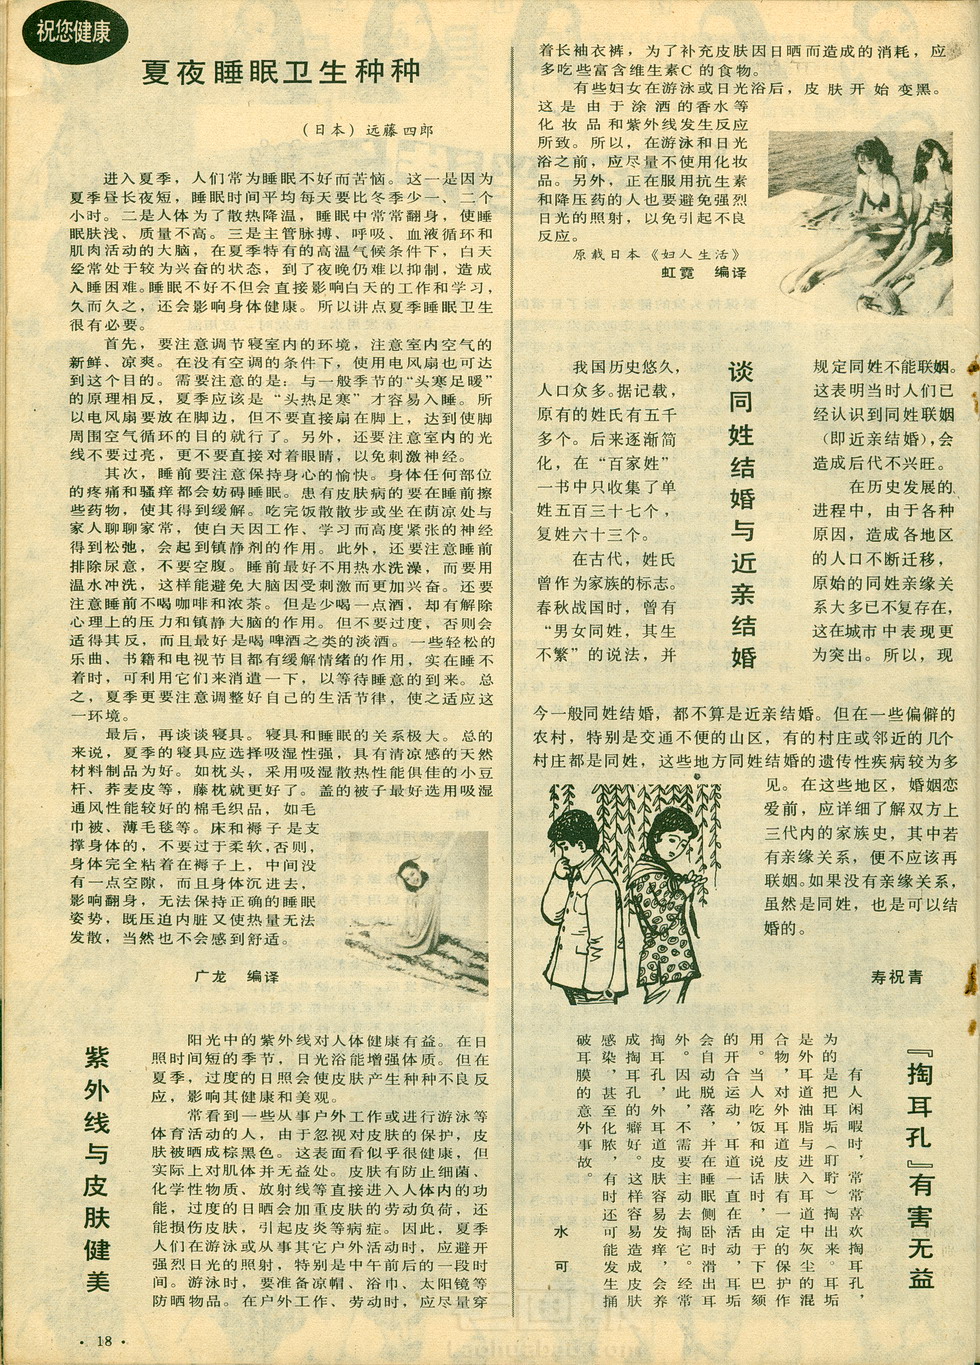 祝您健康
夏夜睡眠卫生种种
（日本）远藤四郎
进入夏季，人们常为睡眠不好而苦恼。这一是因为
夏季昼长夜短，睡眠时间平均每天要比冬季少一、二个
小时。二是人体为了散热降温，睡眠中常常翻身，使睡
眠肤浅、质量不高。三是主管脉搏、呼吸、血液循环和
肌肉活动的大脑，在夏季特有的高温气候条件下，白天
经常处于较为兴奋的状态，到了夜晚仍难以抑制，造成
入睡困难。睡眠不好不但会直接影响白天的工作和学习，
久而久之，还会影响身体健康。所以讲点夏季睡眠卫生
很有必要。
首先，要注意调节寝室内的环境，注意室内空气的
新鲜、凉爽。在没有空调的条件下，使用电风扇也可达
到这个目的。需要注意的是：与一般季节的“头寒足暖”
的原理相反，夏季应该是“头热足寒”才容易入睡。所
以电风扇要放在脚边，但不要直接扇在脚上，达到使脚
周围空气循环的目的就行了。另外，还要注意室内的光
线不要过亮，更不要直接对着眼睛，以免刺激神经。
其次，睡前要注意保持身心的愉快。身体任何部位
的疼痛和骚痒都会妨碍睡眠。患有皮肤病的要在睡前擦
些药物，使其得到缓解。吃完饭散散步或坐在荫凉处与
家人聊聊家常，使白天因工作、学习而高度紧张的神经
得到松弛，会起到镇静剂的作用。此外，还要注意睡前
排除尿意，不要空腹。睡前最好不用热水洗澡，而要用
温水冲洗，这样能避免大脑因受刺激而更加兴奋。还要
注意睡前不喝咖啡和浓茶。但是少喝一点酒，却有解除
心理上的压力和镇静大脑的作用。但不要过度，否则会
适得其反，而且最好是喝啤酒之类的淡酒。一些轻松的
乐曲、书籍和电视节目都有缓解情绪的作用，实在睡不
着时，可利用它们来消遣一下，以等待睡意的到来。总
之，夏季更要注意调整好自己的生活节律，使之适应这
一环境。
最后，再谈谈寝具。寝具和睡眠的关系极大。总的
来说，夏季的寝具应选择吸湿性强，具有清凉感的天然
材料制品为好。如枕头，采用吸湿散热性能俱佳的小豆
秆、荞麦皮等，藤枕就更好了。盖的被子最好选用吸湿
通风性能较好的棉毛织品，如毛
巾被、薄毛毯等。床和褥子是支
撑身体的，不要过于柔软，否则，
身体完全粘着在褥子上，中间没
有一点空隙，而且身体沉进去，
影响翻身，无法保持正确的睡眠
姿势，既压迫内脏又使热量无法
发散，当然也不会感到舒适。
广龙　编译
紫外线与皮肤健美
阳光中的紫外线对人体健康有益。在日
照时间短的季节，日光浴能增强体质。但在
夏季，过度的日照会使皮肤产生种种不良反
应，影响其健康和美观。
常看到一些从事户外工作或进行游泳等
体育活动的人，由于忽视对皮肤的保护，皮
肤被晒成棕黑色。这表面看似乎很健康，但
实际上对肌体并无益处。皮肤有防止细菌、
化学性物质、放射线等直接进入人体内的功
能，过度的日晒会加重皮肤的劳动负荷，还
能损伤皮肤，引起皮炎等病症。因此，夏季
人们在游泳或从事其它户外活动时，应避开
强烈日光的照射，特别是中午前后的一段时
间。游泳时，要准备凉帽、浴巾、太阳镜等
防晒物品。在户外工作、劳动时，应尽量穿
着长袖衣裤，为了补充皮肤因日晒而造成的消耗，应
多吃些富含维生素C的食物。
有些妇女在游泳或日光浴后，皮肤开始变黑。
这是由于涂洒的香水等
化妆品和紫外线发生反应
所致。所以，在游泳和日光
浴之前，应尽量不使用化妆
品。另外，正在服用抗生素
和降压药的人也要避免强烈
日光的照射，以免引起不良
反应。
原载日本《妇人生活》
虹霓　编译
谈同姓结婚与近亲结婚
我国历史悠久，
人口众多。据记载，
原有的姓氏有五千
多个。后来逐渐简
化，在“百家姓”
一书中只收集了单
姓五百三十七个，
复姓六十三个。
在古代，姓氏
曾作为家族的标志。
春秋战国时，曾有
“男女同姓，其生
不繁”的说法，并
规定同姓不能联姻。
这表明当时人们已
经认识到同姓联姻
（即近亲结婚），会
造成后代不兴旺。
在历史发展的
进程中，由于各种
原因，造成各地区
的人口不断迁移，
原始的同姓亲缘关
系大多已不复存在，
这在城市中表现更
为突出。所以，现
今一般同姓结婚，都不算是近亲结婚。但在一些偏僻的
农村，特别是交通不便的山区，有的村庄或邻近的几个
村庄都是同姓，这些地方同姓结婚的遗传性疾病较为多
见。在这些地区，婚姻恋
爱前，应详细了解双方上
三代内的家族史，其中若
有亲缘关系，便不应该再
联姻。如果没有亲缘关系，
虽然是同姓，也是可以结
婚的。
寿祝青
『掏耳孔』有害无益
有人闲暇时，常常喜欢掏耳孔，
为的是把耳垢（耵聍）掏出来。耳垢
是外耳道油脂与进入耳道中灰尘的混
合物，对外耳道皮肤有一定的保护作
用。当人吃饭和说话时，由于下巴颏
的开合运动，耳道一直在活动，耳垢
会自动脱落，并在睡眠侧卧时滑出耳
外。因此，不需要主动去掏它。经常
掏耳孔，外耳道皮肤容易发痒，会养
成掏耳孔的癖好。这样容易造成皮肤
感染，甚至化脓，有时还可能发生捅
破耳膜的意外事故。
水可
·18·